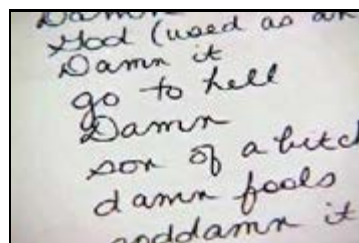 Damn
God (used as an
Damn it
go to hell
Damn
son of a bitch
damn fools
goddamn it